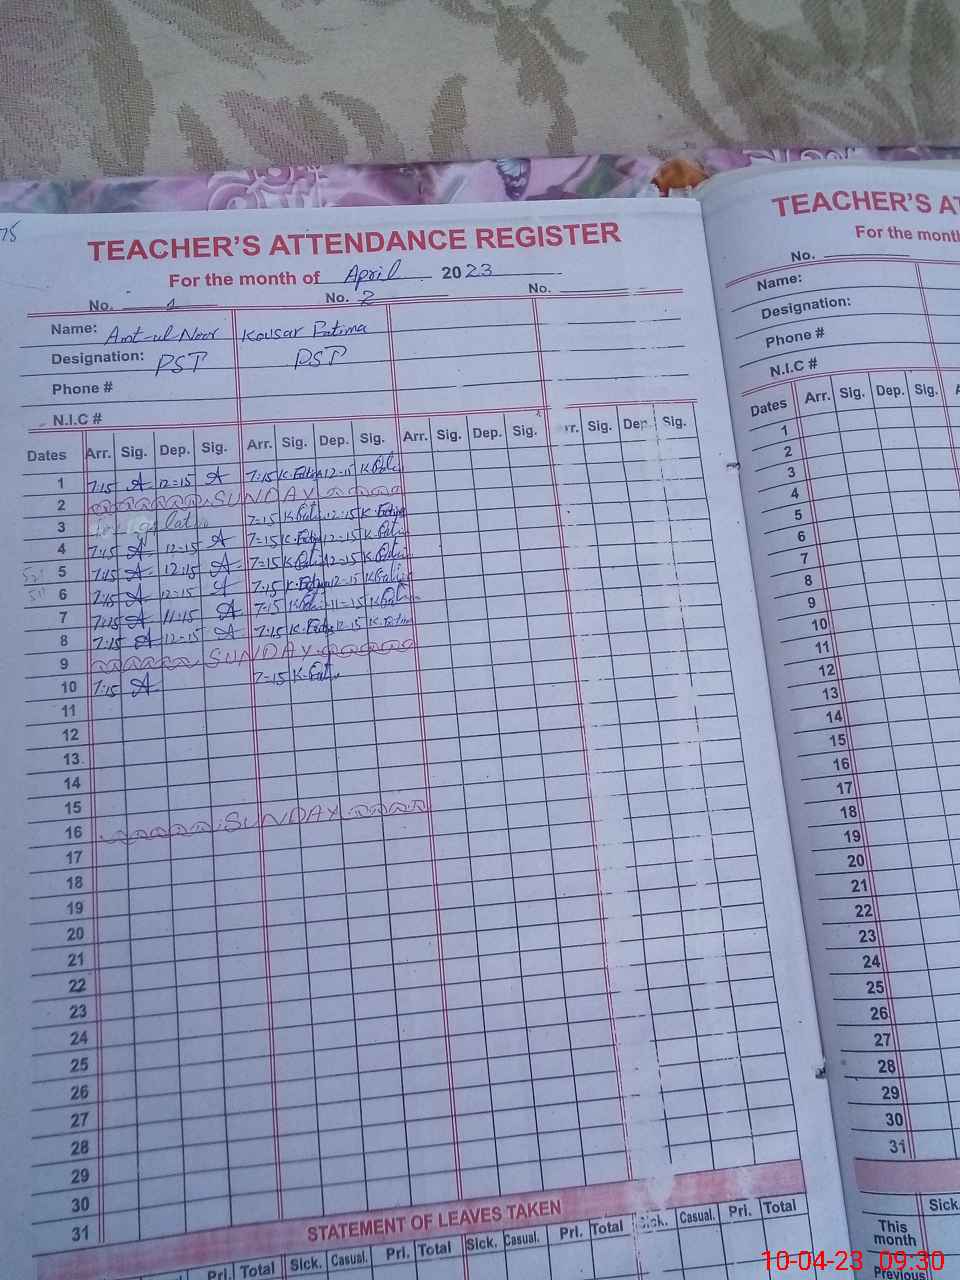 TEACHER'S ATTENDANCE REGISTER
For the month of April 2023
No. 1 No. 2 No.
Name: Amt-ul Noor Kousar Fatima
Designation: PST PST
Phone #
N.I.C #
Dates Arr. Sig. Dep. Sig. Arr. Sig. Dep. Sig. Arr. Sig. Dep. Sig. Sig. Dep. Sig.
1 7:15 A 12=15 A 7:15 K.Fatima 12-15 K.Fati
2 SUNDAY
3 7=15 K.Fati 12-15 K.Fatima
4 7:15 A 12-15 A 7=15 K.Fatima 12-15 K.Fatim
5 7:15 A 12:15 A 7=15 K.Fatim 12=15 K.Fatim
6 7:15 A 12=15 A 7:15 K.Fatima 12-15 K.Fatim
7 7:15 A 11:15 A 7:15 K.Fatim 11=15 K.Fatim
8 7:15 A 12=15 A 7:15 K.Fatima 12-15 K.Fatima
9 SUNDAY
10 7:15 A 7=15 K.Fati
11
12
13
14
15
16 SUNDAY
17
18
19
20
21
22
23
24
25
26
27
28
29
30
31
STATEMENT OF LEAVES TAKEN
Pri. Total Sick. Casual. Pri. Total Sick. Casual. Pri. Total Sick. Casual. Pri. Total
TEACHER'S AT
For the month
No.
Name:
Designation:
Phone #
N.I.C #
Dates Arr. Sig. Dep. Sig.
1
2
3
4
5
6
7
8
9
10
11
12
13
14
15
16
17
18
19
20
21
22
23
24
25
26
27
28
29
30
31
Sick.
This month
Previous
10-04-23 09:30